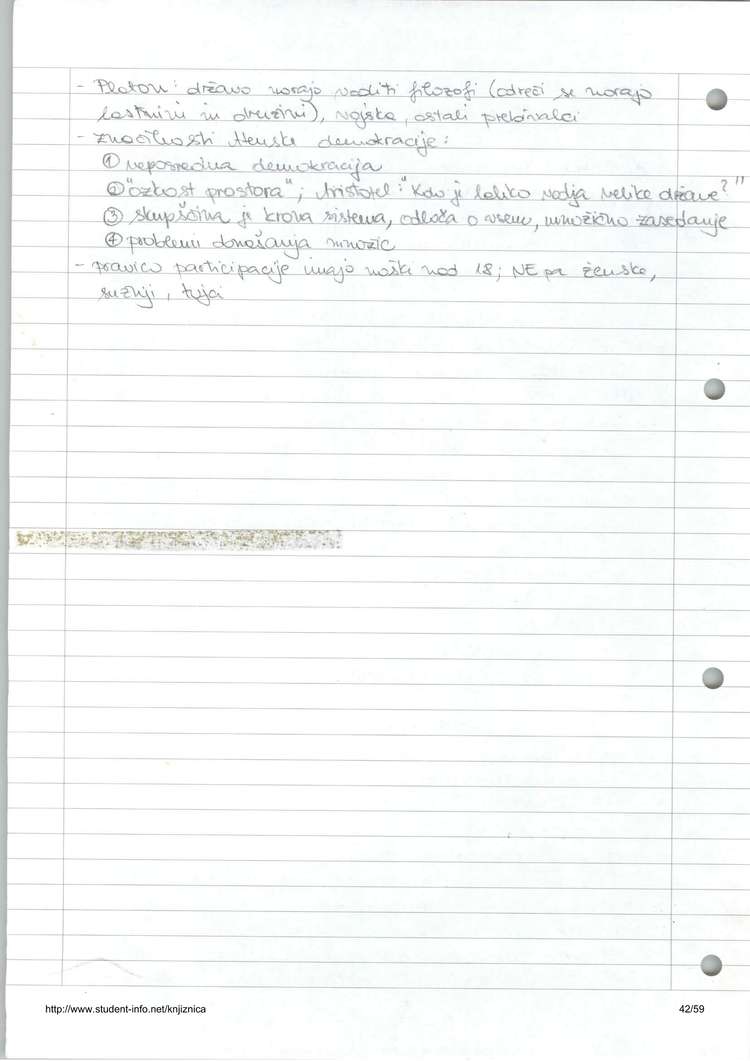 - Platon: državo morajo voditi filozofi (odreči se morajo
lastnini in družini), vojska, ostali prebivalci
- značilnosti Atenske demokracije:
① neposredna demokracija
② "ozkost prostora"; Aristotel: "Kdo je lahko vodja velike države?"
③ skupščina je krona sistema, odloča o vsem, množično zasedanje
④ problemi donašanja množic
- pravico participacije imajo moški nad 18; NE pa ženske,
sužnji, tujci
http://www.student-info.net/knjiznica
42/59